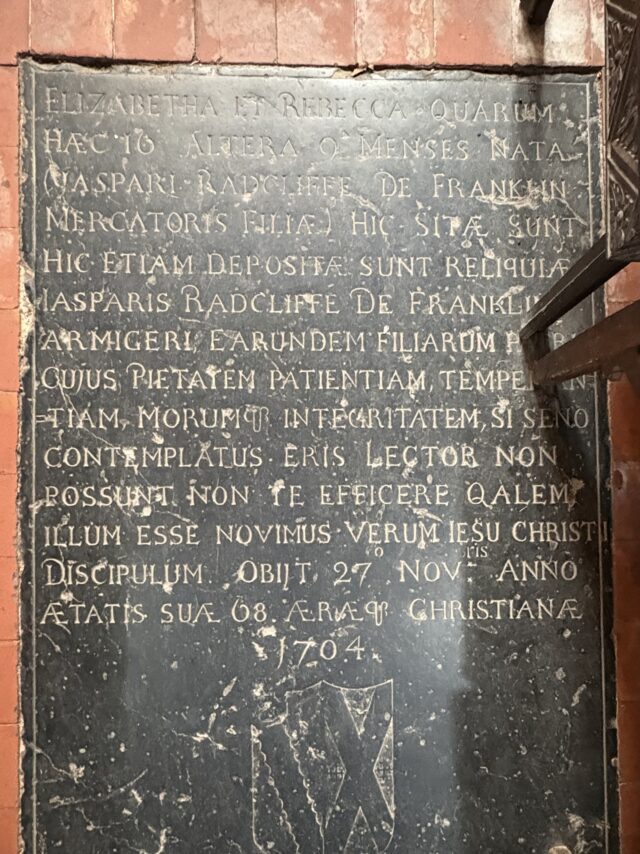 ELIZABETHA ET REBECCA QUARUM
HÆC 16 ALTERA 9 MENSES NATA
(JASPARI RADCLIFFE DE FRANKLIN
MERCATORIS FILIÆ) HIC SITÆ SUNT
HIC ETIAM DEPOSITÆ SUNT RELIQUIÆ
IASPARIS RADCLIFFE DE FRANKLIN
ARMIGERI, EARUNDEM FILIARUM
CUJUS PIETATEM PATIENTIAM,
=TIAM, MORUMQ INTEGRITATEM, SI
CONTEMPLATUS ERIS LECTOR NON
POSSUNT NON TE EFFICERE QALEM
ILLUM ESSE NOVIMUS VERUM IESU CHRISTI
DISCIPULUM. OBIJT 27º NOVRIS ANNO
ÆTATIS SUÆ 68 ÆRÆQ CHRISTIANÆ
1704